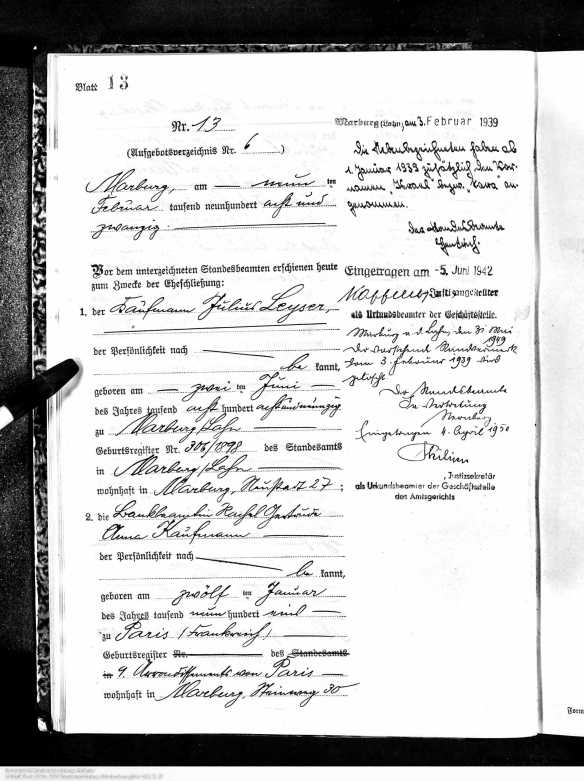 Blatt 13
Nr. 13
(Aufgebotsverzeichnis Nr. 6)
Marburg, am — neun ten
Februar tausend neunhundert acht und
zwanzig.
Vor dem unterzeichneten Standesbeamten erschienen heute
zum Zwecke der Eheschließung:
1. der Kaufmann Julius Leyser,
der Persönlichkeit nach
be kannt,
geboren am — zwei ten Juni —
des Jahres tausend acht hundert achtundneunzig
zu Marburg/Lahn —
Geburtsregister Nr. 306/1898 des Standesamts
in Marburg/Lahn —
wohnhaft in Marburg, Neustadt 27;
2. die Bankbeamtin Rachel Gertrude
Anna Kaufmann —
der Persönlichkeit nach
be kannt,
geboren am zwölf ten Januar
des Jahres tausend neun hundert eins —
zu Paris (Frankreich) —
Geburtsregister Nr. des Standesamts
in 9. Arrondissements von Paris —
wohnhaft in Marburg, Steinweg 30
Marburg (Lahn), am 3. Februar 1939
Die Nebenbezeichneten haben ab
1. Januar 1939 zusätzlich den Vor-
namen "Israel" bezw. "Sara" an-
genommen.
Der Standesbeamte
Eingetragen am - 5. Juni 1942
Justizangestellter
als Urkundsbeamter der Geschäftsstelle.
Marburg a.d. Lahn, den 31. Mai
1949
Der vorstehende Randvermerk
vom 3. Februar 1939 wird
gelöscht
Der Standesbeamte
In Vertretung
Eingetragen 4. April 1950
, Justizsekretär
als Urkundsbeamter der Geschäftsstelle
des Amtsgerichts
Form